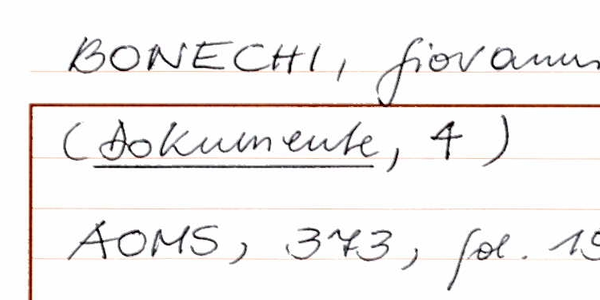 BONECHI, Giovann
(Dokumente, 4)
AOMS, 373, fol. 15